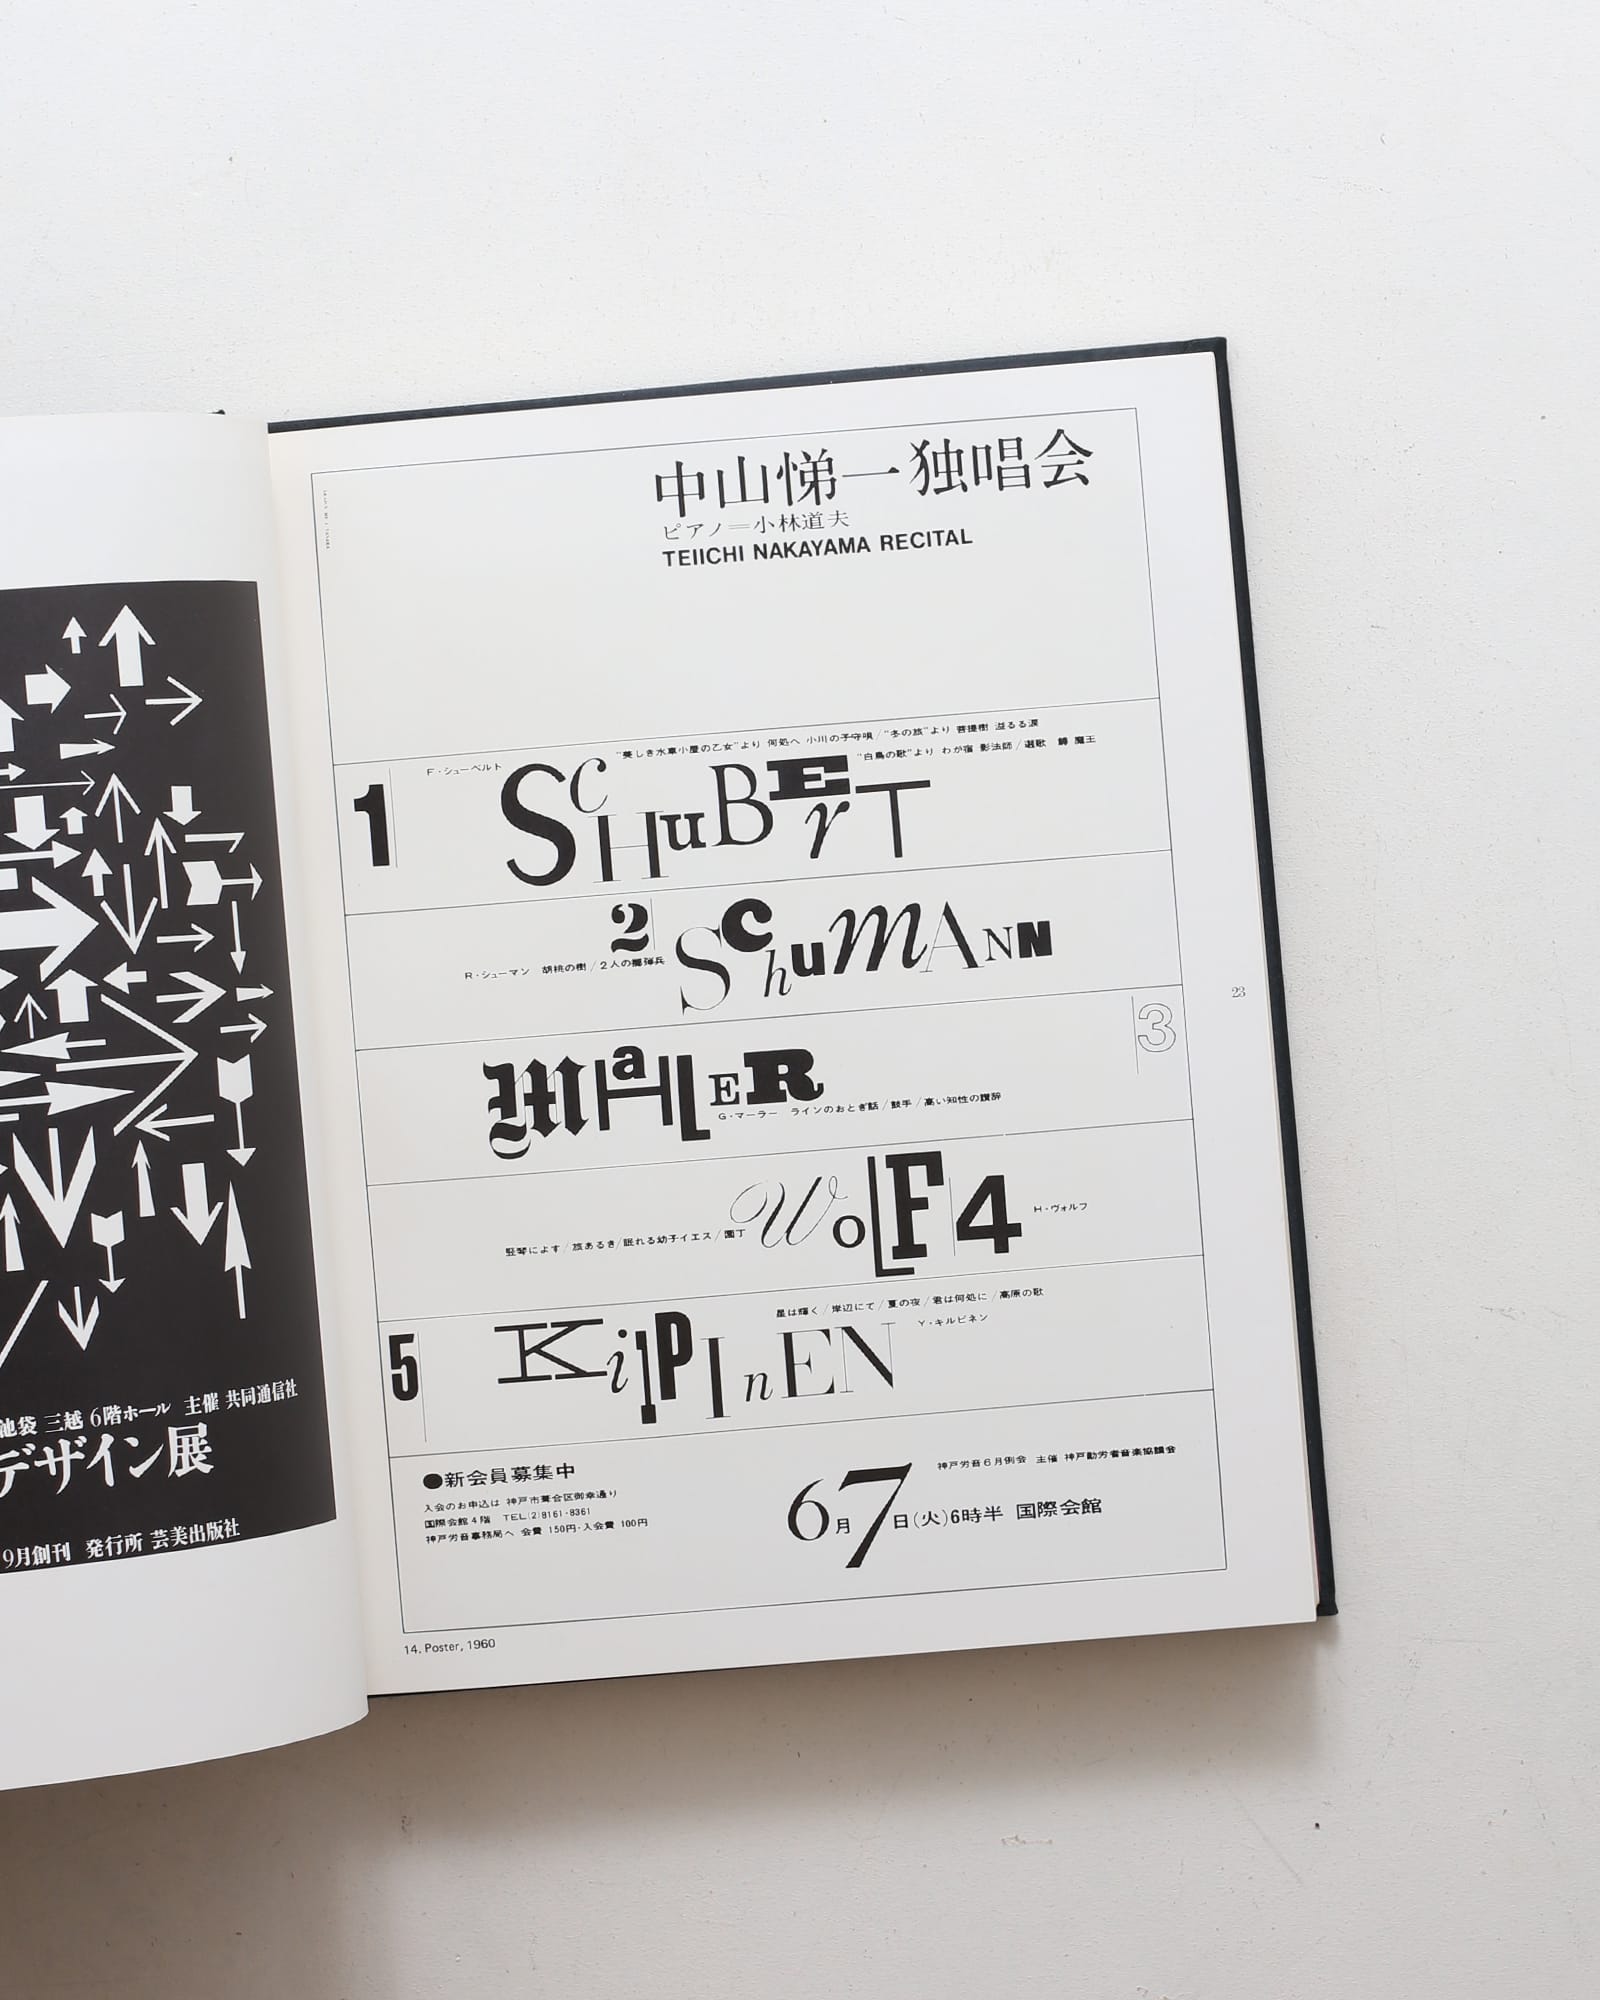 池袋 三越 6階ホール 主催 共同通信社
デザイン展
9月創刊 発行所 芸美出版社
中山悌一独唱会
ピアノ＝小林道夫
TEIICHI NAKAYAMA RECITAL
"美しき水車小屋の乙女"より 何処へ 小川の子守唄/"冬の旅"より 菩提樹 溢るる涙
F・シューベルト
"白鳥の歌"より わが宿 影法師/選歌 鱒 魔王
1
SCHuBErT
2
SchuMANN
R・シューマン 胡桃の樹/2人の擲弾兵
3
MaHLER
G・マーラー ラインのおとぎ話/鼓手/高い知性の讃辞
WoLF 4
H・ヴォルフ
竪琴によす/旅あるき/眠れる幼子イエス/園丁
星は輝く/岸辺にて/夏の夜/君は何処に/高原の歌
Y・キルピネン
5
KilPInEN
●新会員募集中
入会のお申込は 神戸市葺合区御幸通り
国際会館4階 TEL(2)8161-8361
神戸労音事務局へ 会費 150円・入会費 100円
神戸労音6月例会 主催 神戸勤労者音楽協議会
6月7日(火)6時半 国際会館
14. Poster, 1960
23